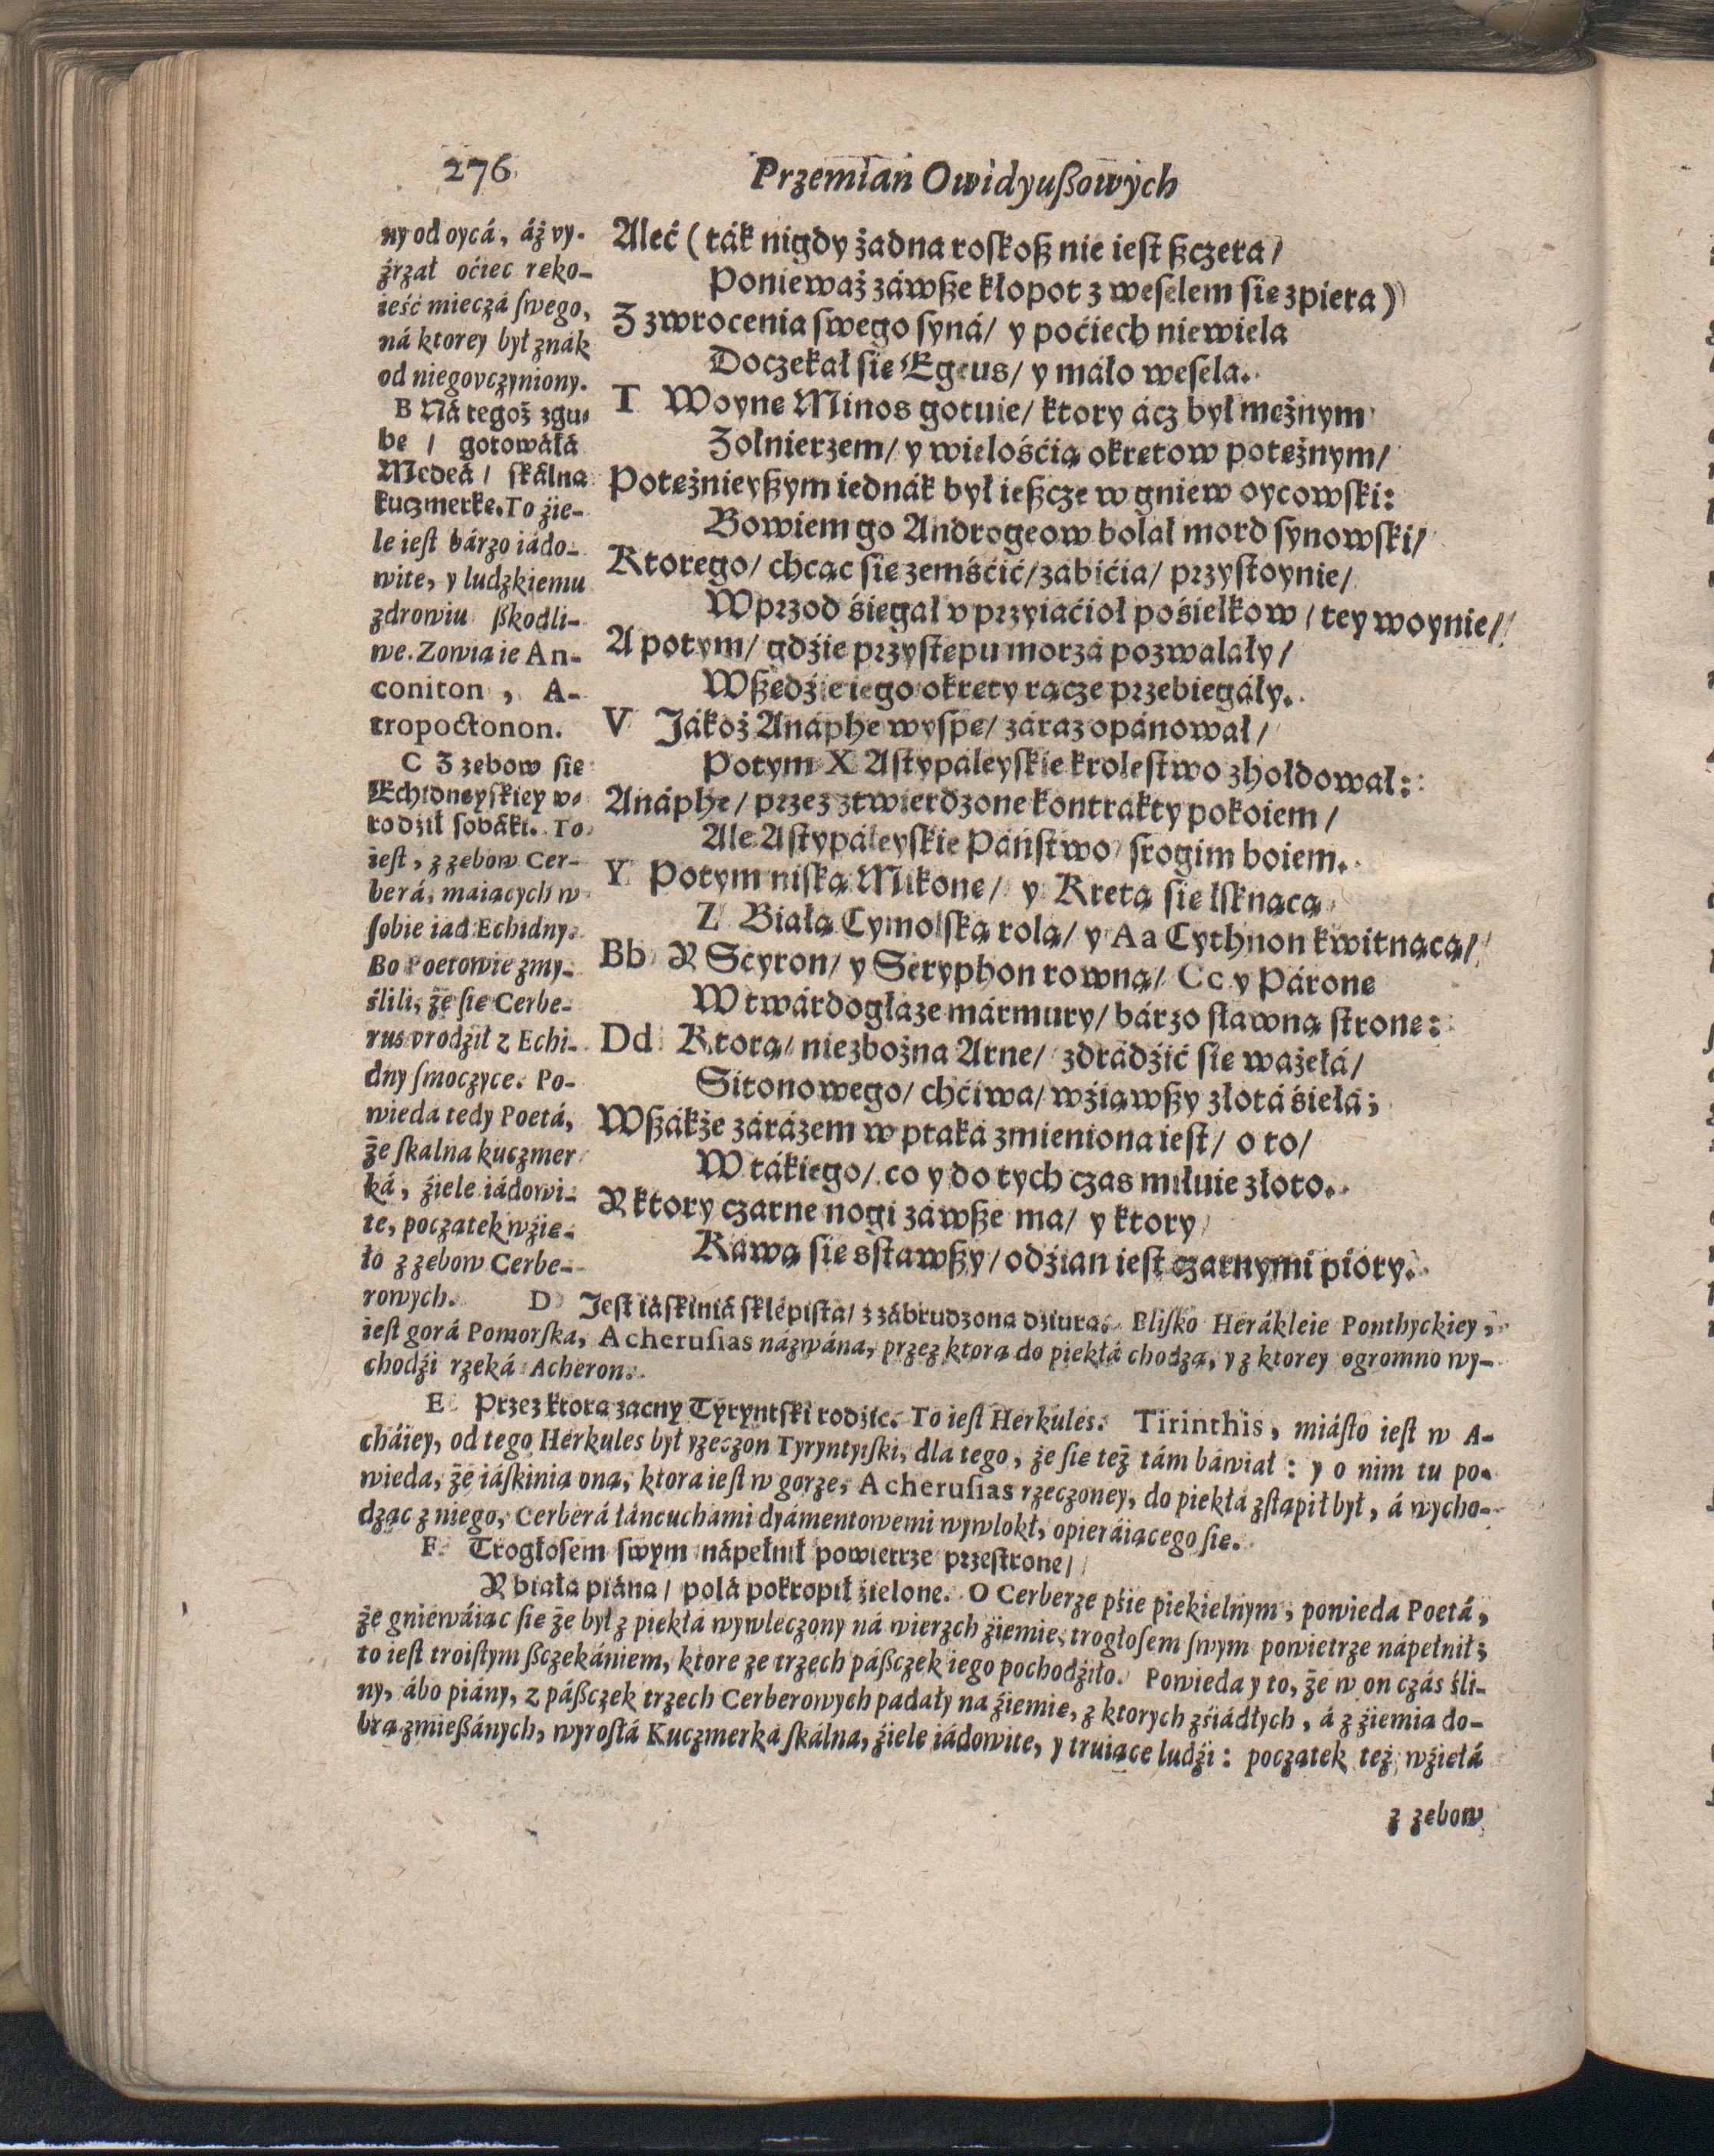 276
Przemian Owidyußowych
ny od oycá, áż vy-
źrzał oćiec reko-
ieść mieczá ſwego,
ná ktorey był znák
od niego vczyniony.
B Ná tegoż zgu-
be / gotowáłá
Medeá / ſkálna
kuczmerke. To źie-
le ieſt bárzo iádo-
wite, y ludzkiemu
zdrowiu ßkodli-
we. Zowia ie An-
coniton, A-
tropoctonon.
C Z zebow ſie
Echidneyſkiey v-
rodźił ſobáki. To
ieſt, z zebow Cer-
berá, maiacych w
ſobie iad Echidny.
Bo Poetowie zmy-
ślili, że ſie Cerbe-
rus vrodźił z Echi-
dny ſmoczyce. Po-
wieda tedy Poetá,
że ſkalna kuczmer
ká, źiele iádowi-
te, poczatek wźie-
ło z zebow Cerbe-
rowych.
Aleć (ták nigdy żadna roſkoß nie ieſt ßczera /
Ponieważ záwße kłopot z weſelem ſie zpiera)
Z zwrocenia ſwego ſyná / y poćiech niewiela
Doczekał ſie Egeus / y máło weſela.
T Woyne Minos gotuie / ktory ácz był meżnym
Żołnierzem / y wielośćią okretow poteżnym /
Poteżnieyßym iednák był ießcze w gniew oycowſki:
Bowiem go Androgeow bolał mord ſynowſki /
Ktorego / chcąc ſie zemśćić / zábićia / przyſtoynie /
Wprzod śiegał v przyiaćioł pośiełkow / tey woynie /
A potym / gdźie przyſtepu morzá pozwalały /
Wßedźie iego okrety rącze przebiegáły.
V Jákoż Anáphe wyſpe / záraz opánował /
Potym X Aſtypaleyſkie kroleſtwo zhołdował:
Anáphe / przez ztwierdzone kontrakty pokoiem /
Ale Aſtypáleyſkie Páńſtwo ſrogim boiem.
Y Potym niſką Mikone / y Kretą ſie lſknącą
Z Białą Cymolſką rolą / y Aa Cythnon kwitnącą /
Bb Y Scyron / y Seryphon rowną / Cc y Párone
W twárdogłaze mármury / bárzo ſławną ſtrone:
Dd Ktorą / niezbożna Arne / zdrádźić ſie ważełá /
Sitonowego / chćiwa / wźiąwßy złotá śiełá;
Wßákże zárázem w ptaká zmieniona ieſt / o to /
W tákiego / co y do tych czas miłuie złoto.
Y ktory czarne nogi záwße ma / y ktory
Kawą ſie zſtawßy / odźian ieſt czarnymi piory.
D Jeſt iáſkiniá ſklépiſta / z zábrudzona dźiura. Bliſko Herákleie Ponthyckiey,
ieſt gorá Pomorſka, Acheruſias názwána, przez ktora do piekłá chodzą, y z ktorey ogromno wy-
chodźi rzeká Acheron.
E Przez ktora zacny Tyryntſki rodźic. To ieſt Herkules. Tirinthis, miáſto ieſt w A-
cháiey, od tego Herkules był rzeczon Tyryntyiſki, dla tego, że ſie też tám báwiał: y o nim tu po-
wieda, że iáſkinia ona, ktora ieſt w gorze, Acheruſias rzeczoney, do piekłá zſtąpił był, á wycho-
dząc z niego, Cerberá łáncuchami dyámentowemi wywlokł, opieráiącego ſie.
F Trogłoſem ſwym nápełnił powietrze przeſtrone /
Y biała piána / polá pokropił źielone. O Cerberze pśie piekielnym, powieda Poetá,
że gniewáiąc ſie że był z piekłá wywleczony ná wierzch źiemie, trogłoſem ſwym powietrze nápełnił;
to ieſt troiſtym ßczekániem, ktore ze trzech páßczek iego pochodźiło. Powieda y to, że w on czás śli-
ny, ábo piány, z páßczek trzech Cerberowych padały na źiemie, z ktorych zśiádłych, á z źiemia do-
bra zmießánych, wyroſłá Kuczmerká ſkálna, źiele iádowite, y truiące ludźi: poczatek też wźiełá
z zebow